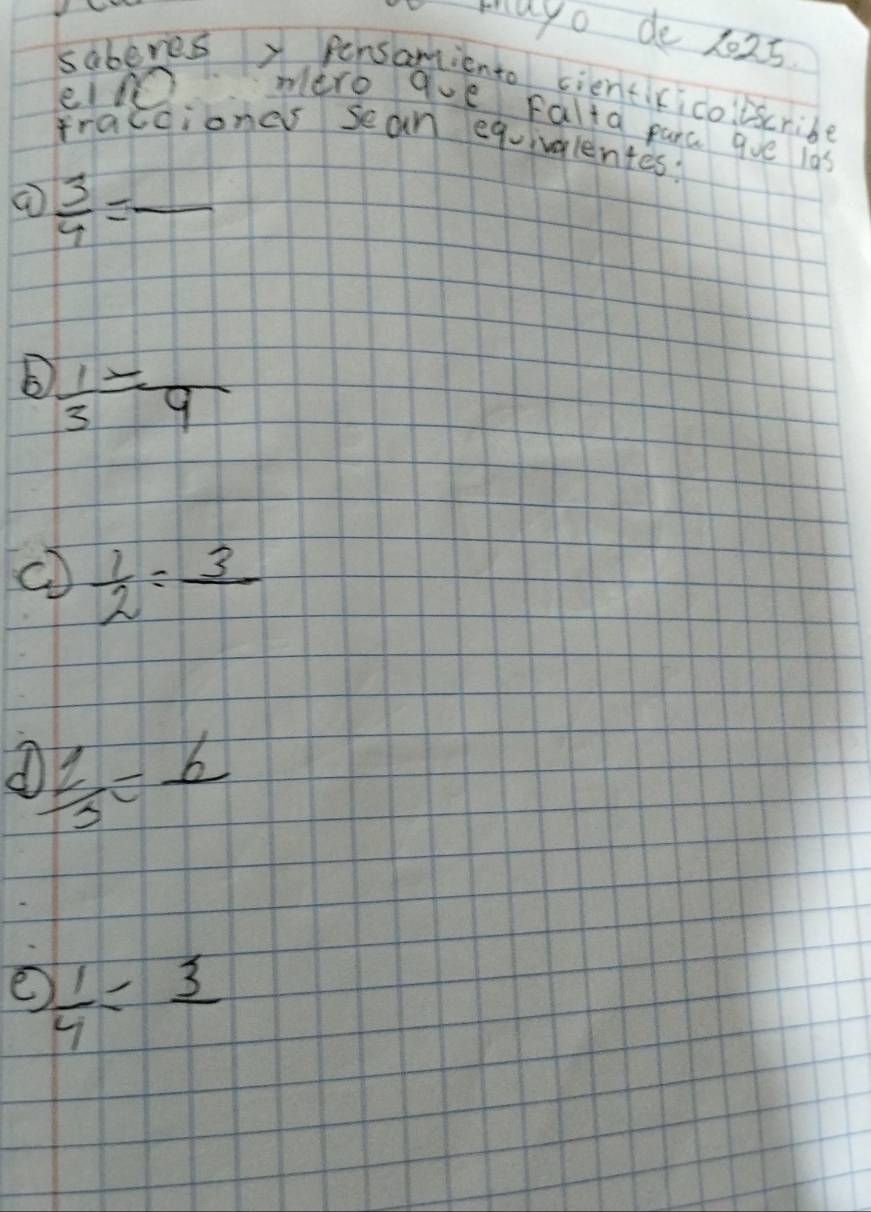 mayo de 2025.
saberes y pensamiento cientificio: Escribe
el mero que Falta para que las
fracciones sean equivalentes:
a) 3/4 = —
b) 1/3 = —/9
c) 1/2 = 3/—
d) /3 = 6/—
e) 1/4 = 3/—